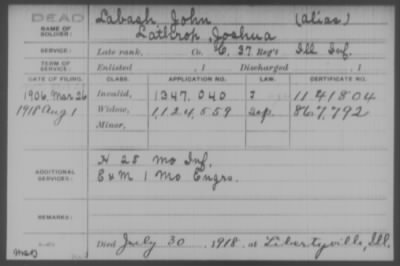 DEAD
NAME OF SOLDIER: Labagh, John (alias)
Lathrop, Joshua
SERVICE: Late rank, Co. C, 37 Reg't Ill Inf.
TERM OF SERVICE: Enlisted , 1 Discharged , 1
DATE OF FILING. CLASS. APPLICATION NO. LAW. CERTIFICATE NO.
1906, Mar 26 Invalid, 1347.040 1141804
1918 Aug 1 Widow, 1,124,559 867,792
Minor,
ADDITIONAL SERVICES: H 28 Mo Inf.
E & M 1 Mo Engrs.
REMARKS:
Died July 30 1918, at Libertyville, Ill.